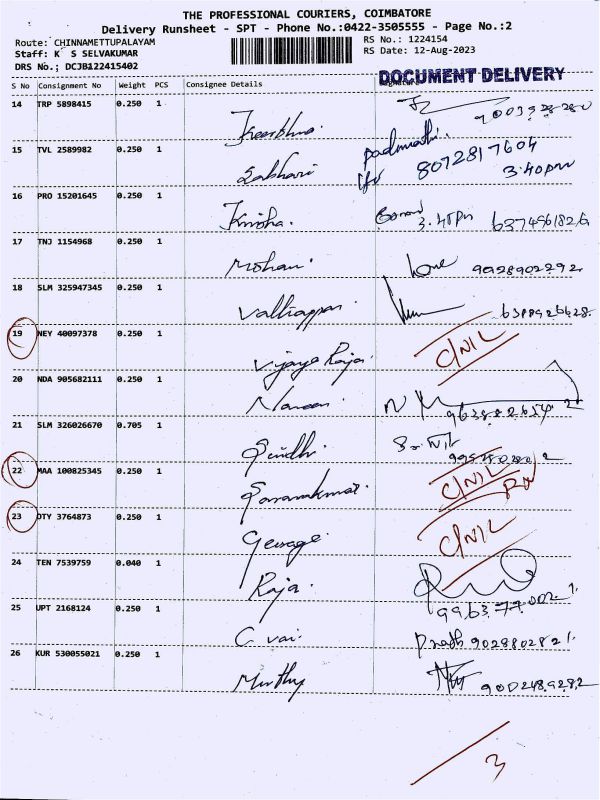 THE PROFESSIONAL COURIERS, COIMBATORE
Delivery Runsheet - SPT - Phone No.:0422-3505555 - Page No.:2
Route: CHINNAMETTUPALAYAM
Staff: K S SELVAKUMAR
DRS No.; DCJB122415402
RS No.: 1224154
RS Date: 12-Aug-2023
DOCUMENT DELIVERY
S No Consignment No Weight PCS Consignee Details
14 TRP 5898415 0.250 1
15 TVL 2589982 0.250 1 Sabhari padmathi 8072817604
3.40pm
16 PRO 15201645 0.250 1 Krisha. 3.45pm
17 TNJ 1154968 0.250 1 Mohan. 9028902292
18 SLM 325947345 0.250 1
19 NEY 40097378 0.250 1 Vijaya Raja. C/NIL
20 NDA 905682111 0.250 1 Naveen
21 SLM 326026670 0.705 1 Sindhi
22 MAA 100825345 0.250 1 C/NIL
23 OTY 3764873 0.250 1 George. C/NIL
24 TEN 7539759 0.040 1 Raja.
25 UPT 2168124 0.250 1 C. vai 9029802821.
26 KUR 530055021 0.250 1 Murthy 9002489282
3